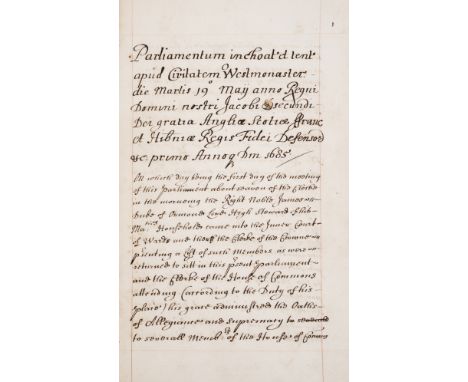 1
Parliamentum inchoat'd tent
apud Civitatem Westmonaster
die Martis 19o May anno Regni
Domini nostri Jacobi secundi
Dei gratia Angliæ Scotiæ ffranc
et Hibniæ Regis Fidei Defensor
&c primo Annoq Dm 1685
On which day being the first day of the meeting
of this Parliament about seaven of the Clocke
in the morneing the Right Noble James
Duke of Ormond Lord High Steward of his
Maties Household came into the Inner Court
of Wards and there the Clerke of the Crowne
pſenting a list of such Members as were
returned to sitt in this pſent Parliament
and the Clerke of the House of Commons
attending (according to the Duty of his
place) his grace administred the Oathes
of Allegiance and Supremacy to
to severall Memb: of the House of Comons